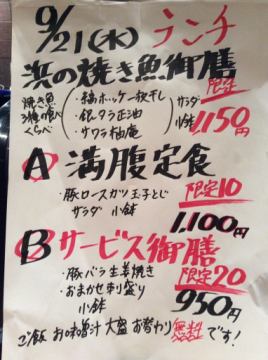 9/21(水) ランチ
浜の焼き魚御膳
焼き魚3種の食べくらべ
・縞ホッケ一夜干し
・銀ダラ正油
・サワラ柚庵
サラダ
小鉢
限定
1,150円
A 満腹定食
・豚ロースカツ玉子とじ
サラダ 小鉢
限定10
1,100円
B サービス御膳
・豚バラ生姜焼き
・おまかせ刺盛り
小鉢
限定20
950円
ご飯 お味噌汁 大盛 お替わり無料です!